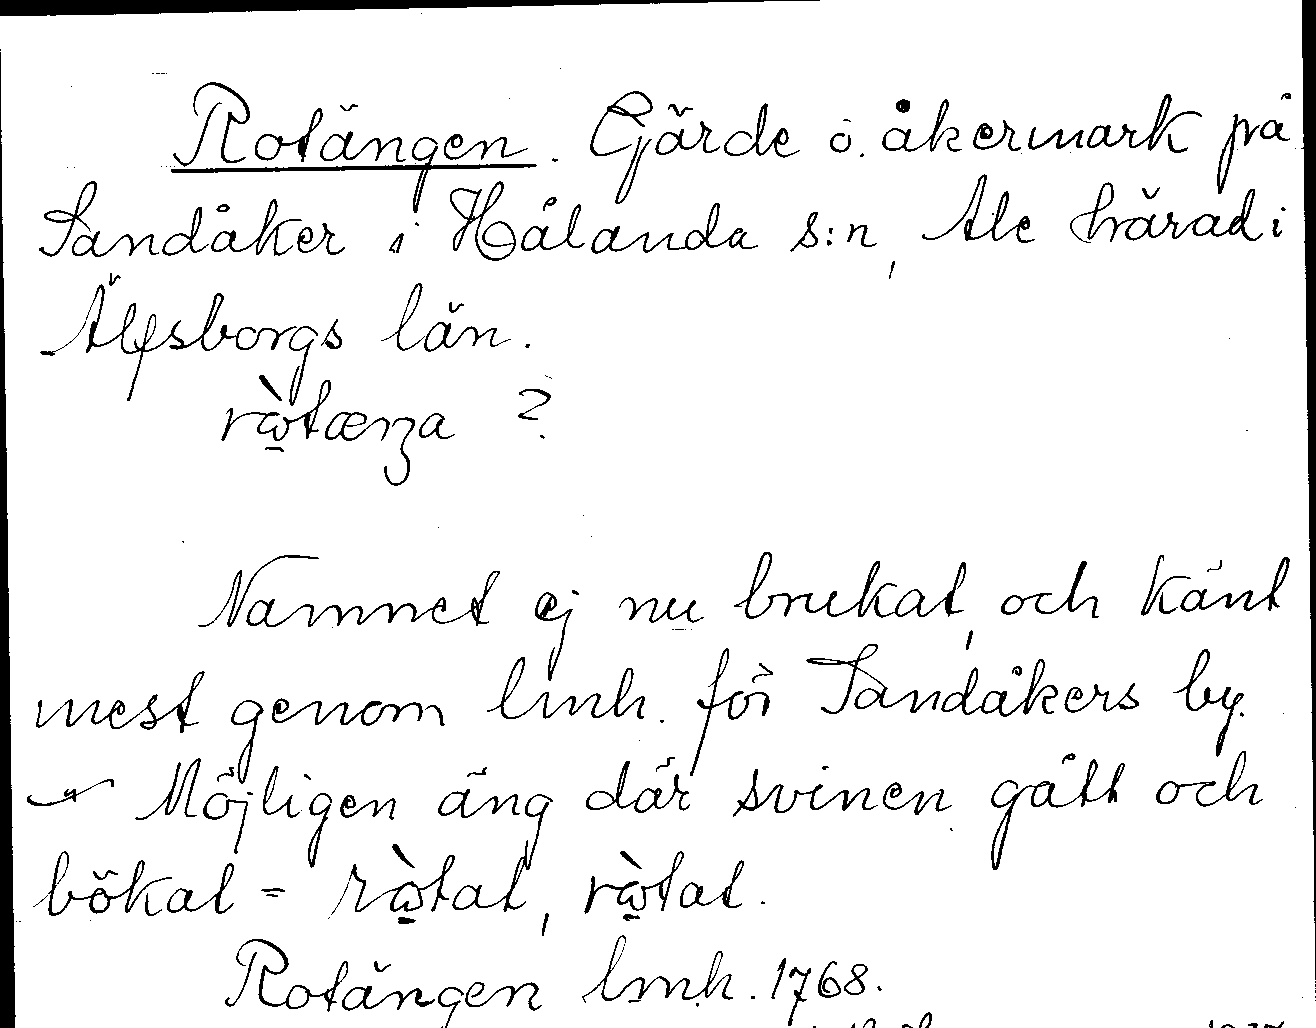 Rotängen. Gärde o. åkermark på
Sandåker i Hålanda s:n, Ale härad i
Älfsborgs län.
rὼtænȝa ?
Namnet ej nu brukat, och känt
mest genom lmh. för Sandåkers by.
Möjligen äng där svinen gått och
bökat = rὼtat, rὼtat.
Rotängen lmh. 1768.